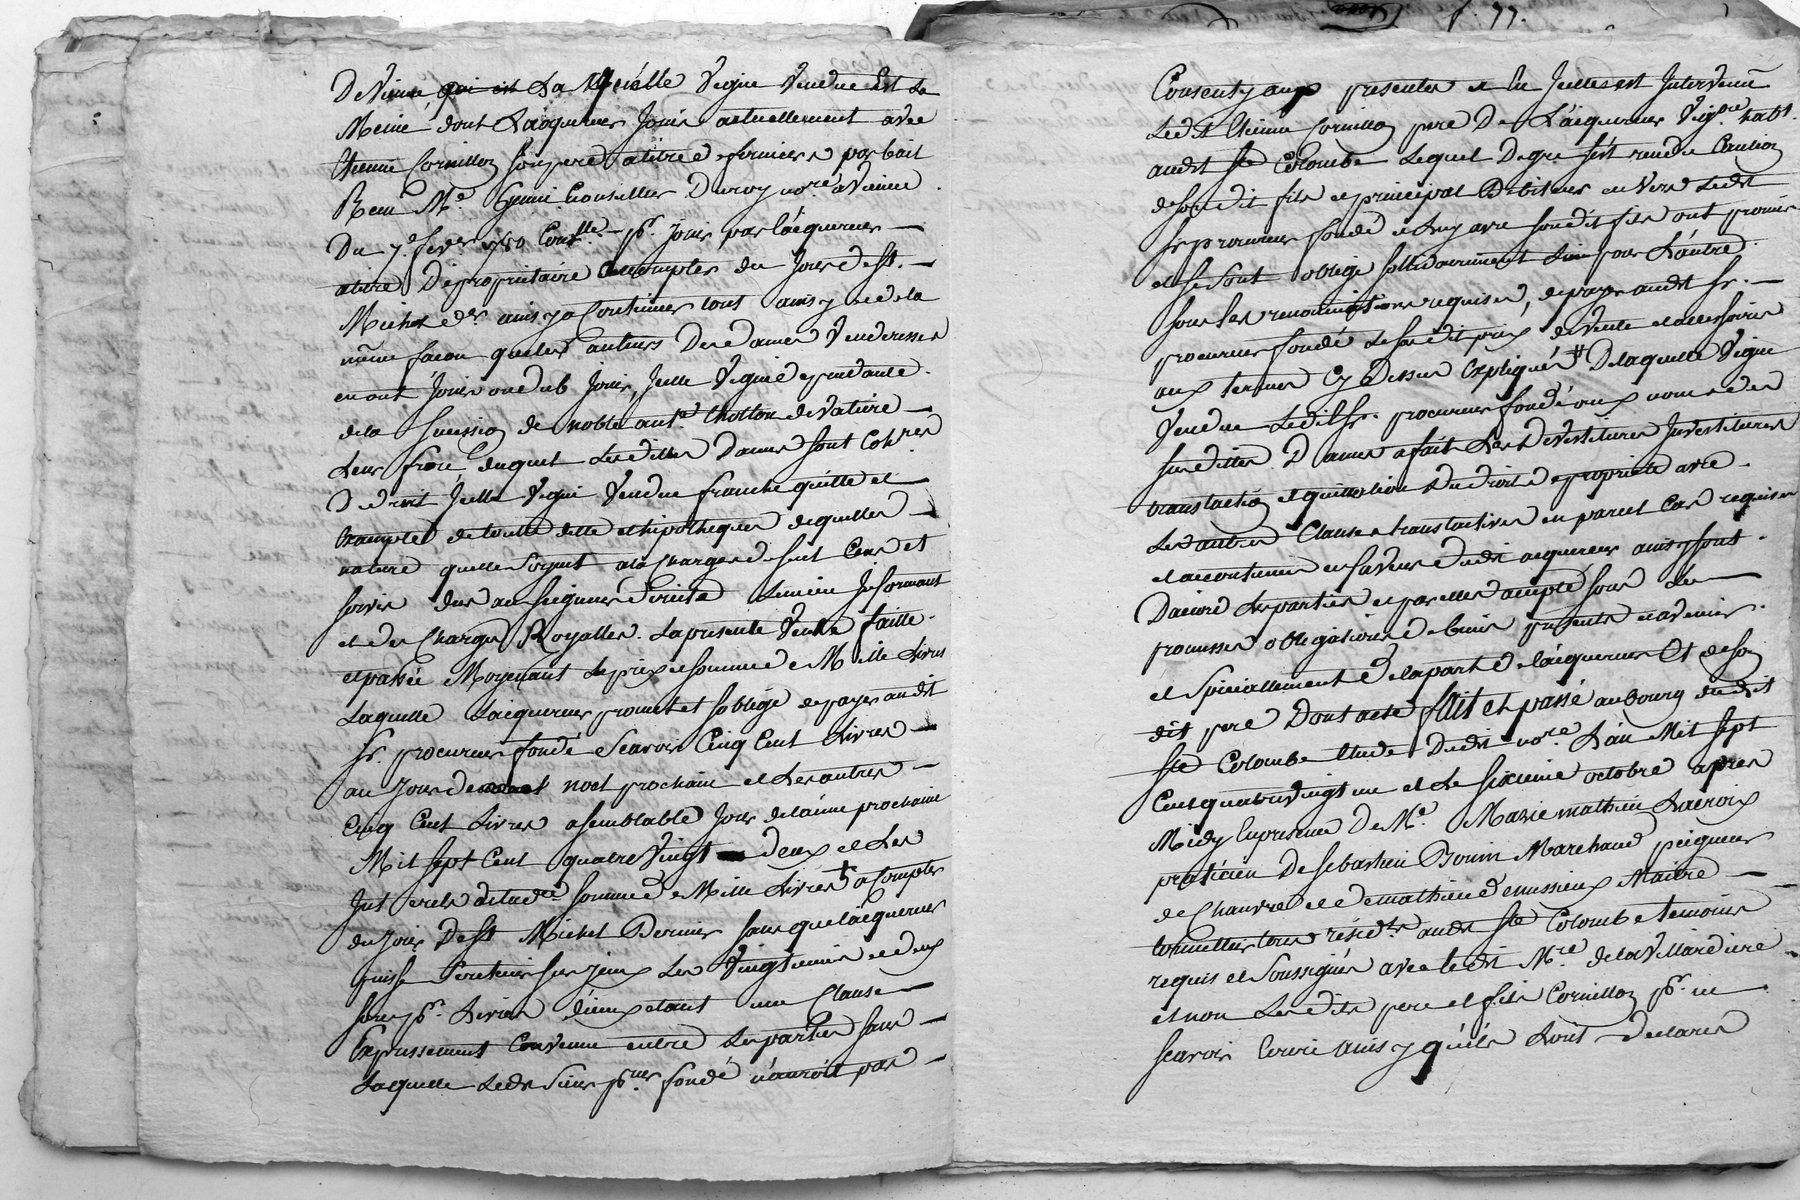 f. 77.
De Vienne, qui est La Ditte Vigne Vendue Est La
Meme dont L'acquereur Jouit actuellement avec
Etienne Cornillon son pere a titre de ferme par bail
Recu Me. Conseiller Du roy nore. a Vienne
Du 7e. fevr 1780 pr. Jouir par l'acquereur
a titre De proprietaire a Compter du Jour de St.
Michel der. ainsy a Continuer tout ainsy et de la
meme facon que les auteurs Des Dames Venderesses
en ont Jouis ou dub Jouir, Jcelle Vigne dependante
de la succession de noble ant. Chollon de Vatiere
Leur frere duquel Lesdittes Dames sont Cohres.
De droit Jcelle Vigne Vendue franche quitte et
Exempte de toutte dette et hipotheques de quelles
nature quelles soyent a la charge de son Cens et
servis dus au seigneur Directe
et des Charges Royalles. La presente Vente faitte
et passée Moyenant Le prix et somme de Mille Livres
Laquelle L'acquereur promet et s'oblige de payer audit
Sr. procureur fondé Scavoir Cinq Cent Livres
au Jour de noel prochain et Les autres
Cinq Cent Livres a semblable Jour de l'année prochaine
Mil sept Cent quatre Vingt deux et Les
Jnterets de laditte somme de Mille Livres a Compter
du Jour De St Michel Dernier sans que l'acquereur
puisse retenir sur Jceux Les Vingtiemes et deux
sous pr. Livres d'iceux etant une Clause
Expressement Convenue entre Les parties sans
Laquelle Ledt Sieur pr. fondé n'auroit pas
Consenty aux presentes et En Jcelles est Jntervenu
Ledit Etienne Cornillon pere De L'acquereur Vigon habt.
audit Ste Colombe Lequel De gre s'est rendu Caution
de sondit fils et principal Debiteur en Vers Ledit
Sr procureur fondé et Luy avec sondit fils ont promis
et se sont obligé sollidairement L'un pour L'autre
sous Les renonciations requises, de payer audit Sr.
procureur fondé Le susdit prix de Vente et accessoires
aux termes Cy Dessus Expliqués De laquelle Vigne
Vendue Ledit Sr. procureur fondé aux noms des
susdittes Dames a fait Les Devestitures Jnvestitures
translation et quittation Du droit de proprieté avec
Les autres Clauses translatives en pareil Cas requises
et accoutumées en faveur Dudit acquereur ainsy sont
D'accord Les parties et par elles accepté sous de
promesses obligations de biens presents et avenir
et Specialement De la part de l'acquereur Et de son
dit pere Dont acte fait et passé au bourg dudit
Ste Colombe Etude Dudit nore. L'an Mil sept
Cent quatre Vingt un et Le sixieme octobre apres
Midy En presence De Me. Marie mathieu Lacroix
praticien De Sebastien Bonin Marchand peigneur
de Chanvre et de mathieu demussieux Maitre
tonnellier tous resid.ts audt Ste Colombe temoins
requis et Soussignés avec ledit Mre. de la Villardiere
et non Lesdits pere et fils Cornillon pr. ne
scavoir Ecrire ainsy qu'ils L'ont declarés